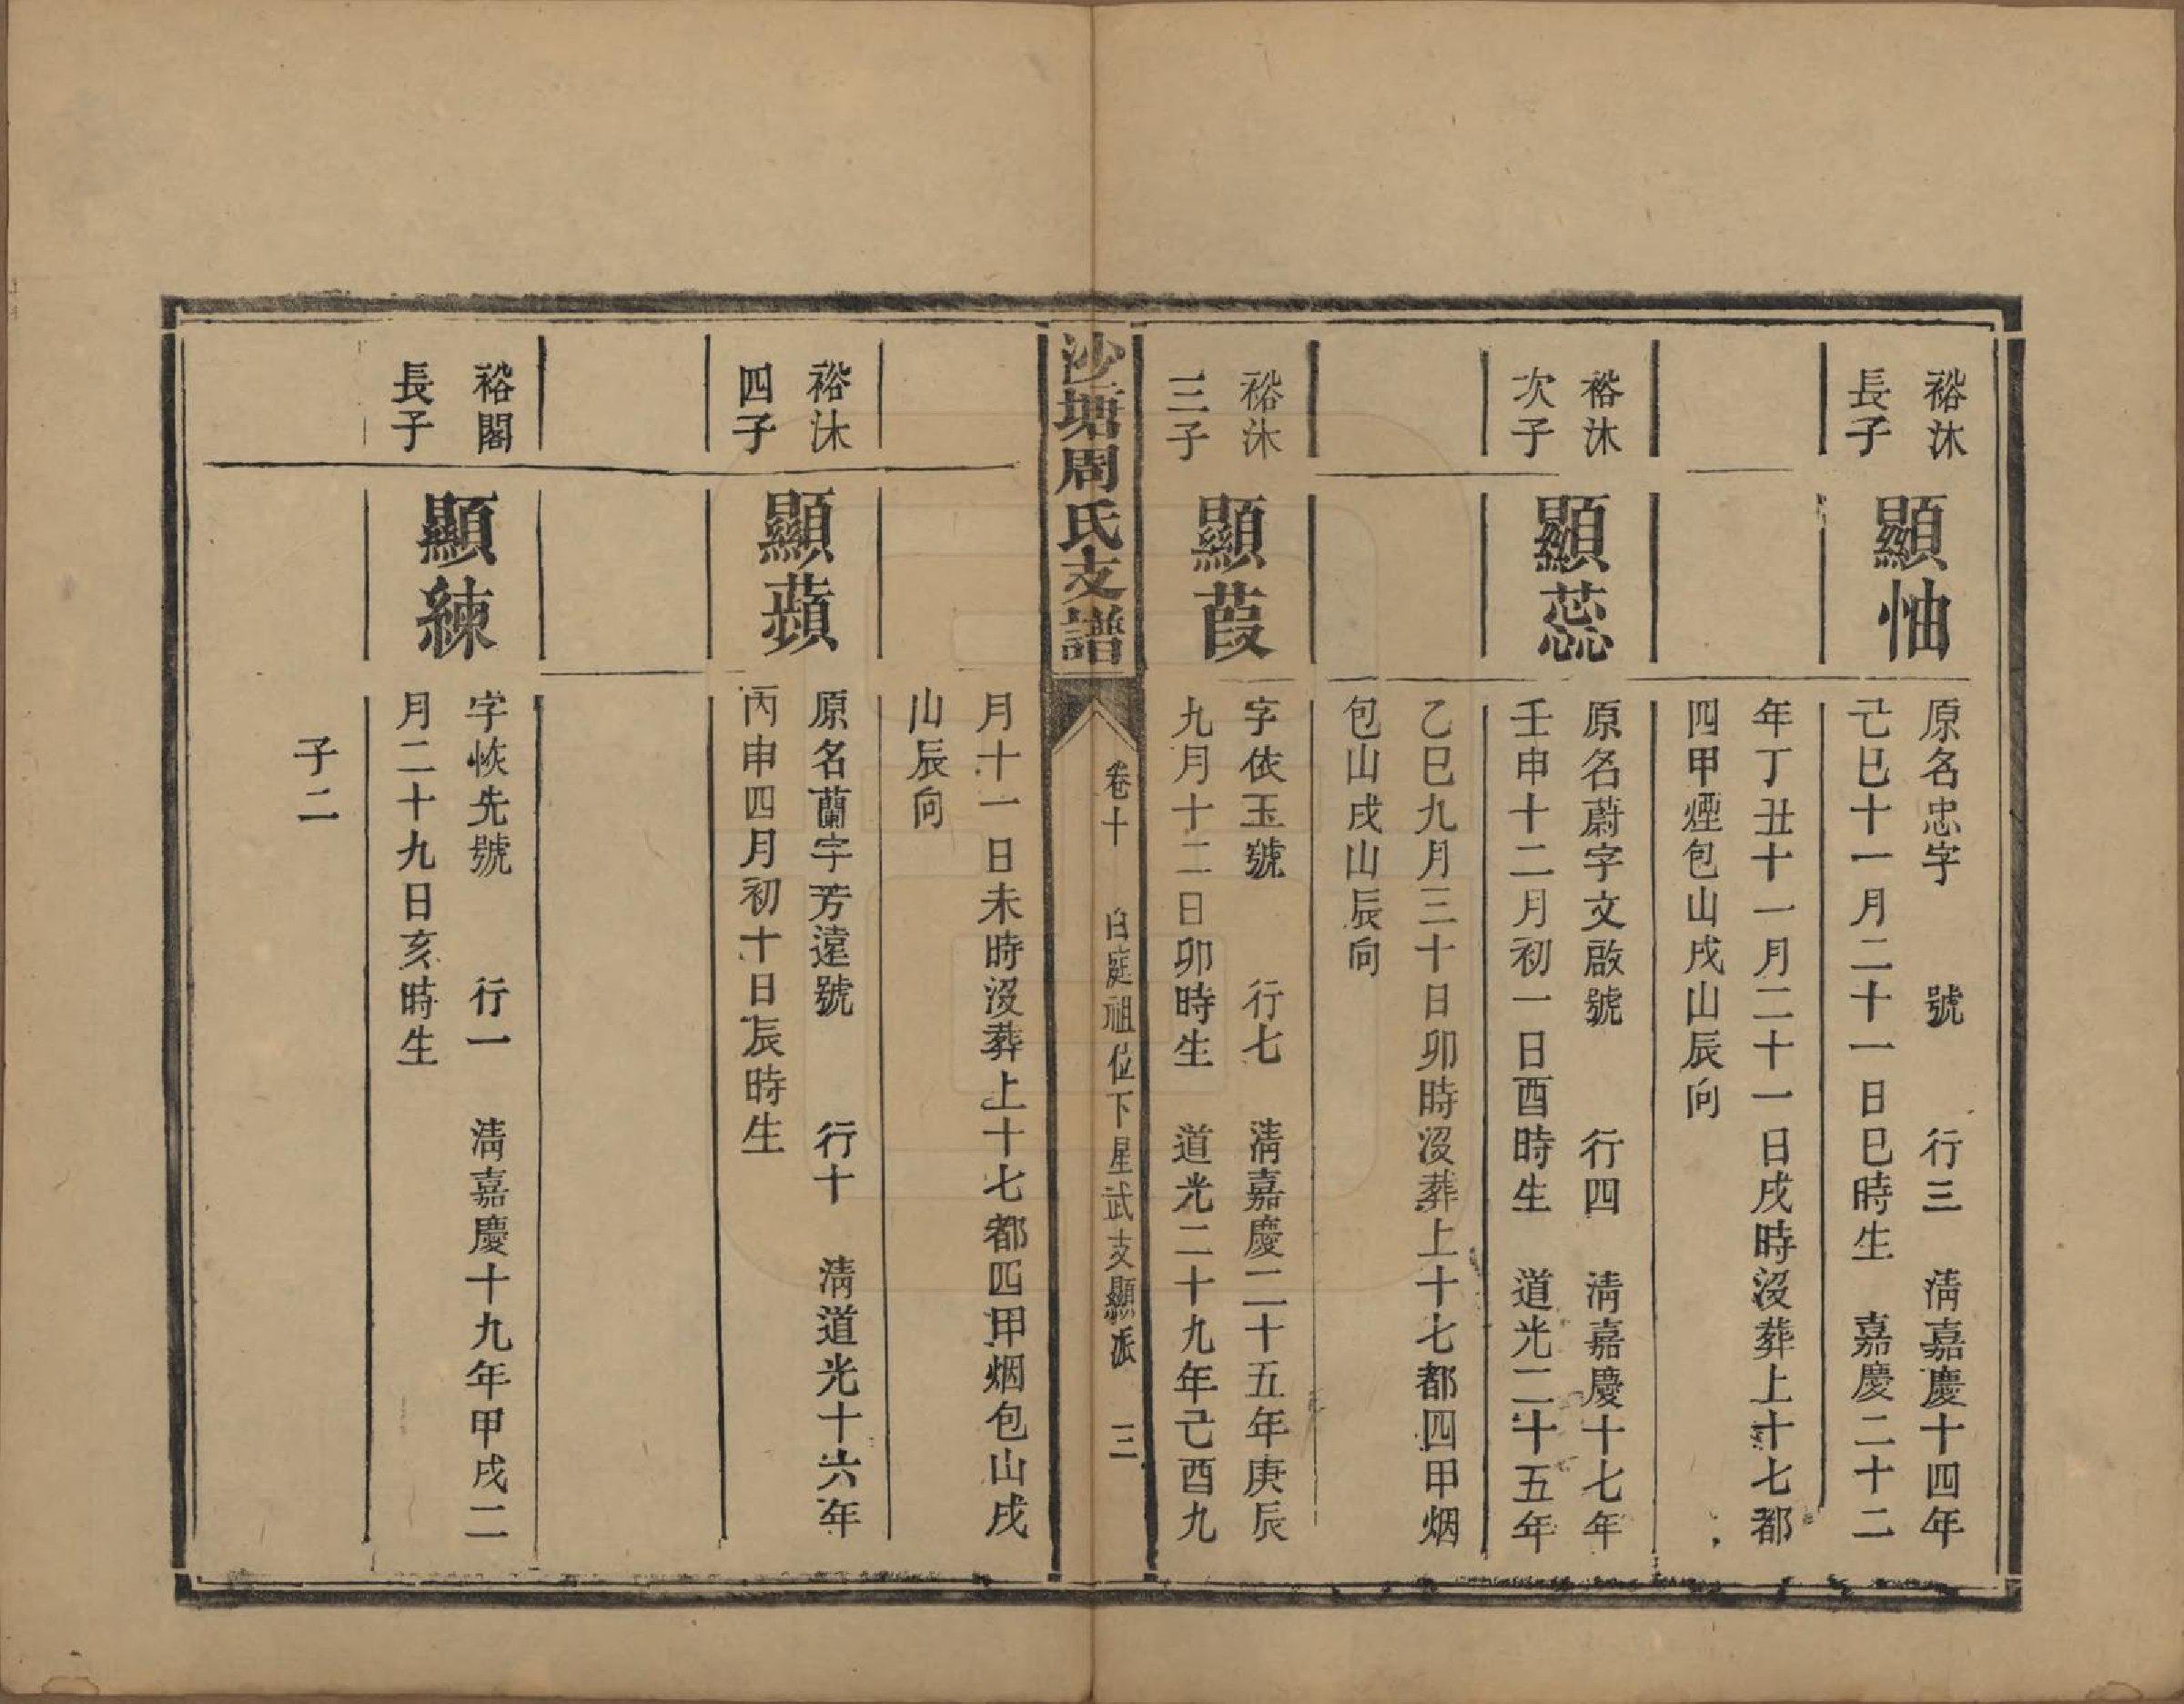 裕沐
長子
顯怞
原名忠字 號 行三 淸嘉慶十四年
己巳十一月二十一日巳時生 嘉慶二十二
年丁丑十一月二十一日戌時沒葬上十七都
四甲煙包山戌山辰向
裕沐
次子
顯蕊
原名蔚字文啟號 行四 淸嘉慶十七年
壬申十二月初一日酉時生 道光二十五年
乙巳九月三十日卯時沒葬上十七都四甲烟
包山戌山辰向
裕沐
三子
顯葭
字依玉號 行七 淸嘉慶二十五年庚辰
九月十二日卯時生 道光二十九年己酉九
沙塘周氏支譜
卷十 白庭祖位下星武支顯派 三
月十一日未時沒葬上十七都四甲烟包山戌
山辰向
裕沐
四子
顯蘋
原名蘭字芳遠號 行十 淸道光十六年
丙申四月初十日辰時生
裕閣
長子
顯練
字恢先號 行一 淸嘉慶十九年甲戌二
月二十九日亥時生
子二